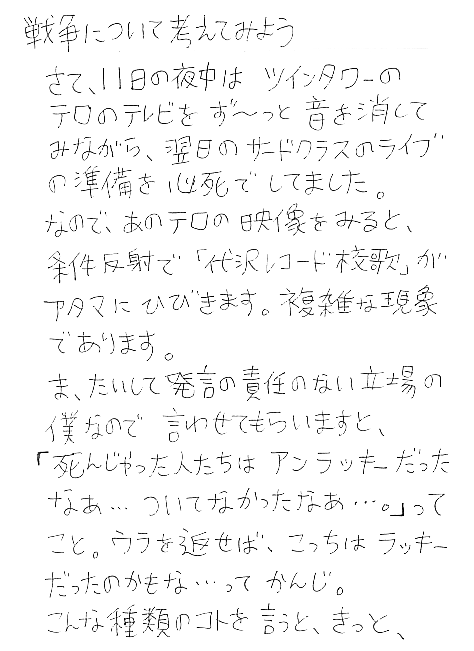 戦争について考えてみよう
さて、11日の夜中は ツインタワーの
テロのテレビを ず〜っと 音を消して
みながら、翌日のサードクラスのライブ
の準備を必死で してました。
なので、あのテロの映像をみると、
条件反射で「代沢レコード校歌」が
アタマに ひびきます。複雑な現象
であります。
ま、たいして発言の責任のない立場の
僕なので 言わせてもらいますと、
「死んじゃった人たちは アンラッキーだった
なぁ… ついてなかったなぁ…。」って
こと。ウラを返せば、こっちは ラッキー
だったのかもな…って かんじ。
こんな種類のコトを言うと、きっと、